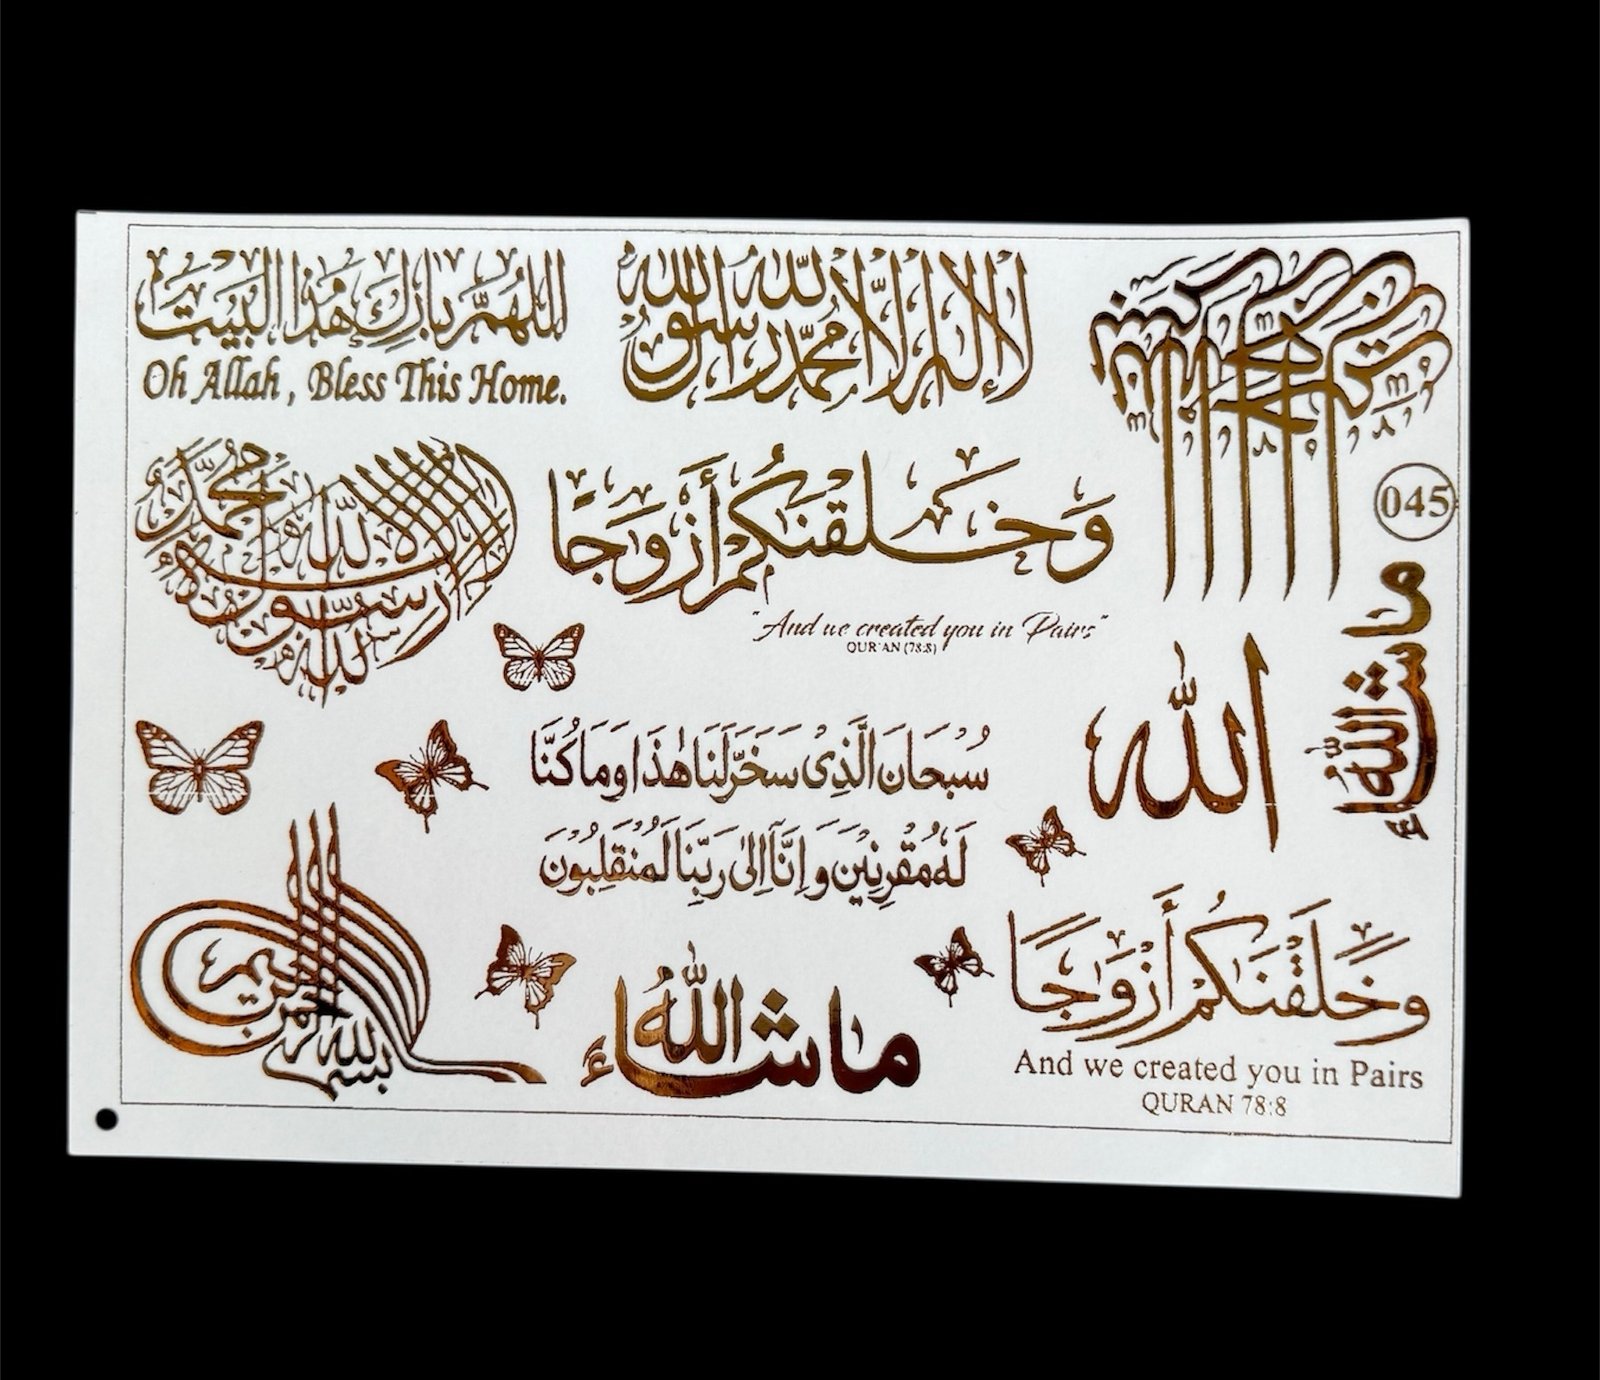 اللهم بارك هذا البيت
Oh Allah, Bless This Home.
لا إله إلا الله محمد رسول الله
045
لا إله إلا الله محمد رسول الله
وَخَلَقْنَكُمْ أَزْوَجًا
"And we created you in Pairs"
QUR'AN (78:8)
ما شاء الله
الله
سُبْحَانَ الَّذِىْ سَخَّرَلَنَا هٰذَا وَمَا كُنَّا
لَهٗ مُقْرِنِيْنَ وَاِنَّآ اِلٰى رَبِّنَا لَمُنْقَلِبُوْنَ
بسم الله الرحمن الرحيم
ما شاء الله
وَخَلَقْنَكُمْ أَزْوَجًا
And we created you in Pairs
QURAN 78:8